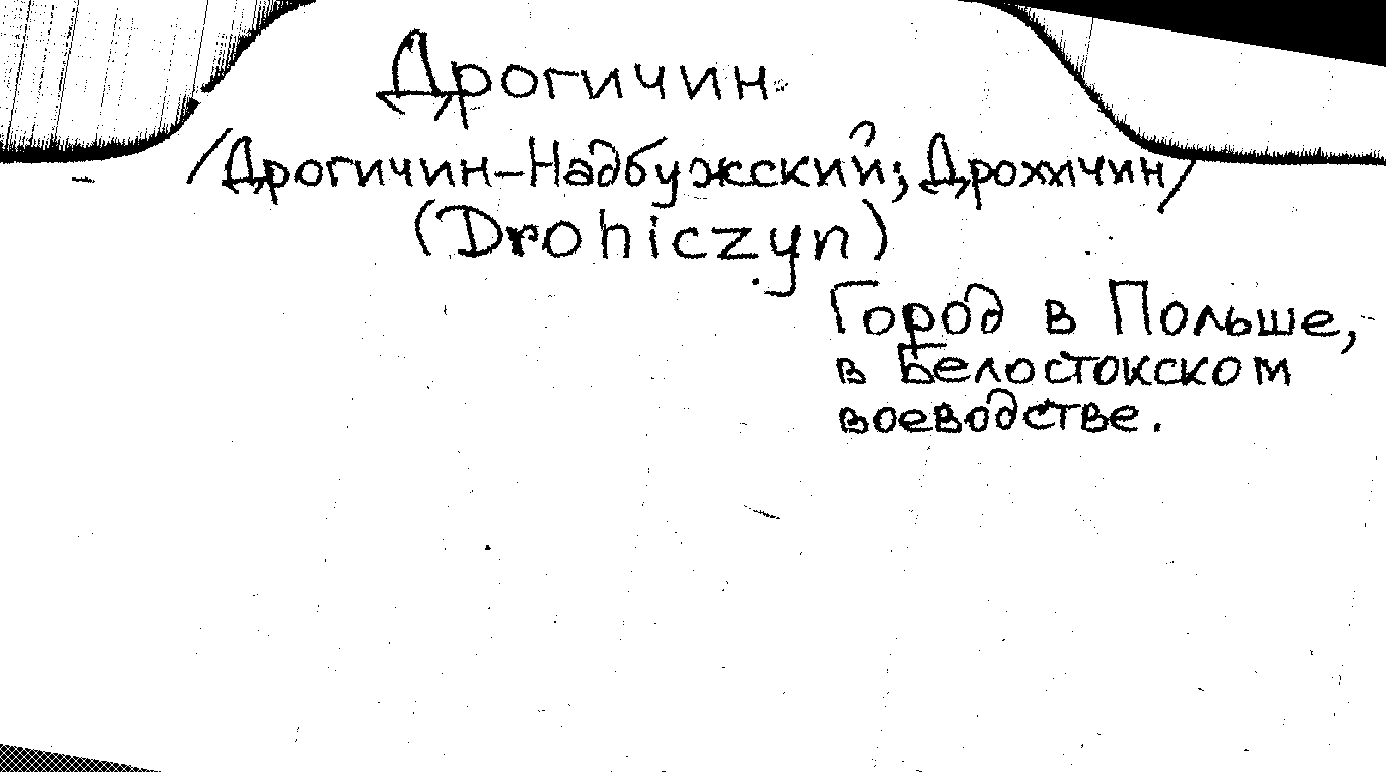 Дрогичин
/Дрогичин-Надбужский; Дрохичин/
(Drohiczyn)
Город в Польше,
в Белостокском
воеводстве.